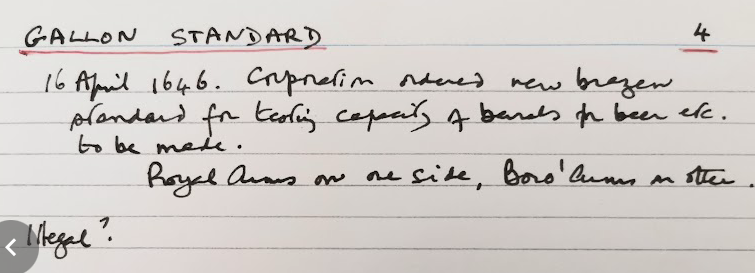 GALLON STANDARD 4
16 April 1646. Corporation ordered new brazen
standard for testing capacity of barrels for beer etc.
to be made.
Royal Arms on one side, Boro' Arms on other.
Illegal?